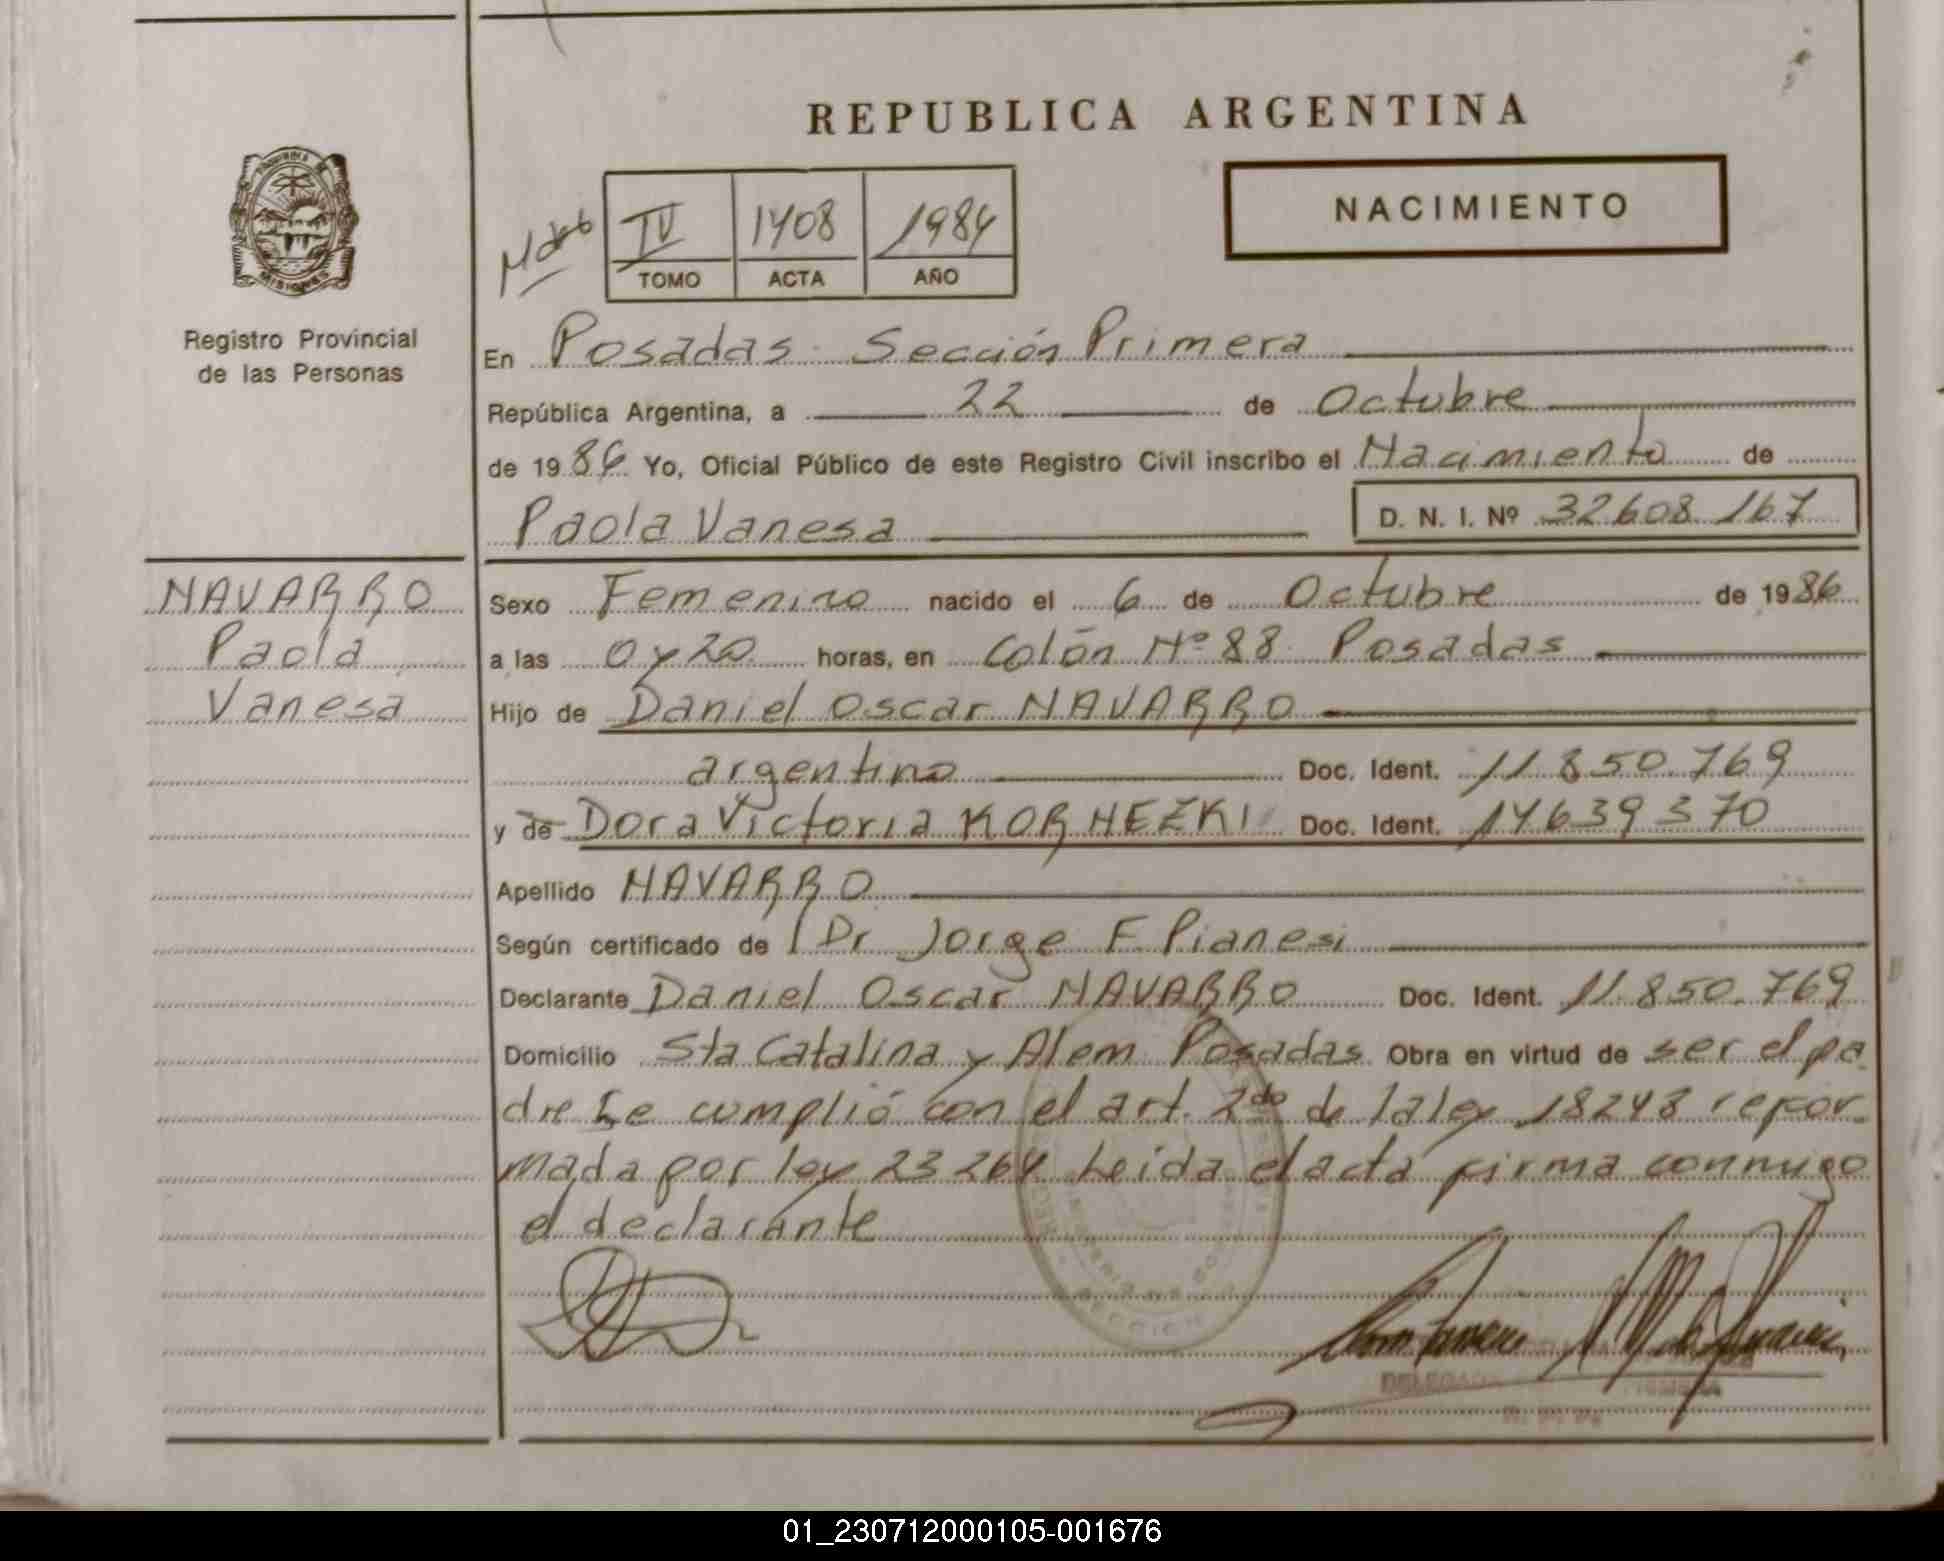 REPUBLICA ARGENTINA
NACIMIENTO
IV 1408 1986
TOMO ACTA AÑO
PROVINCIA DE MISIONES
Registro Provincial
de las Personas
En Posadas Sección Primera
República Argentina, a 22 de Octubre
de 1986 Yo, Oficial Público de este Registro Civil inscribo el Nacimiento de
Paola Vanesa D. N. I. Nº 32608 167
NAVARRO
Paola
Vanesa
Sexo Femenino nacido el 6 de Octubre de 1986
a las 0 y 20 horas, en Colón Nº 88 Posadas
Hijo de Daniel Oscar NAVARRO
argentino Doc. Ident. 11.850.769
y de Dora Victoria KORNEZKI Doc. Ident. 14639370
Apellido NAVARRO
Según certificado de Dr Jorge F Pianesi
Declarante Daniel Oscar NAVARRO Doc. Ident. 11.850.769
Domicilio Sta Catalina y Alem Posadas Obra en virtud de ser el pa
dre Se cumplió con el art. 2do de la ley 18248 refor
mada por ley 23264 Leida el acta firma conmigo
el declarante
01_230712000105-001676